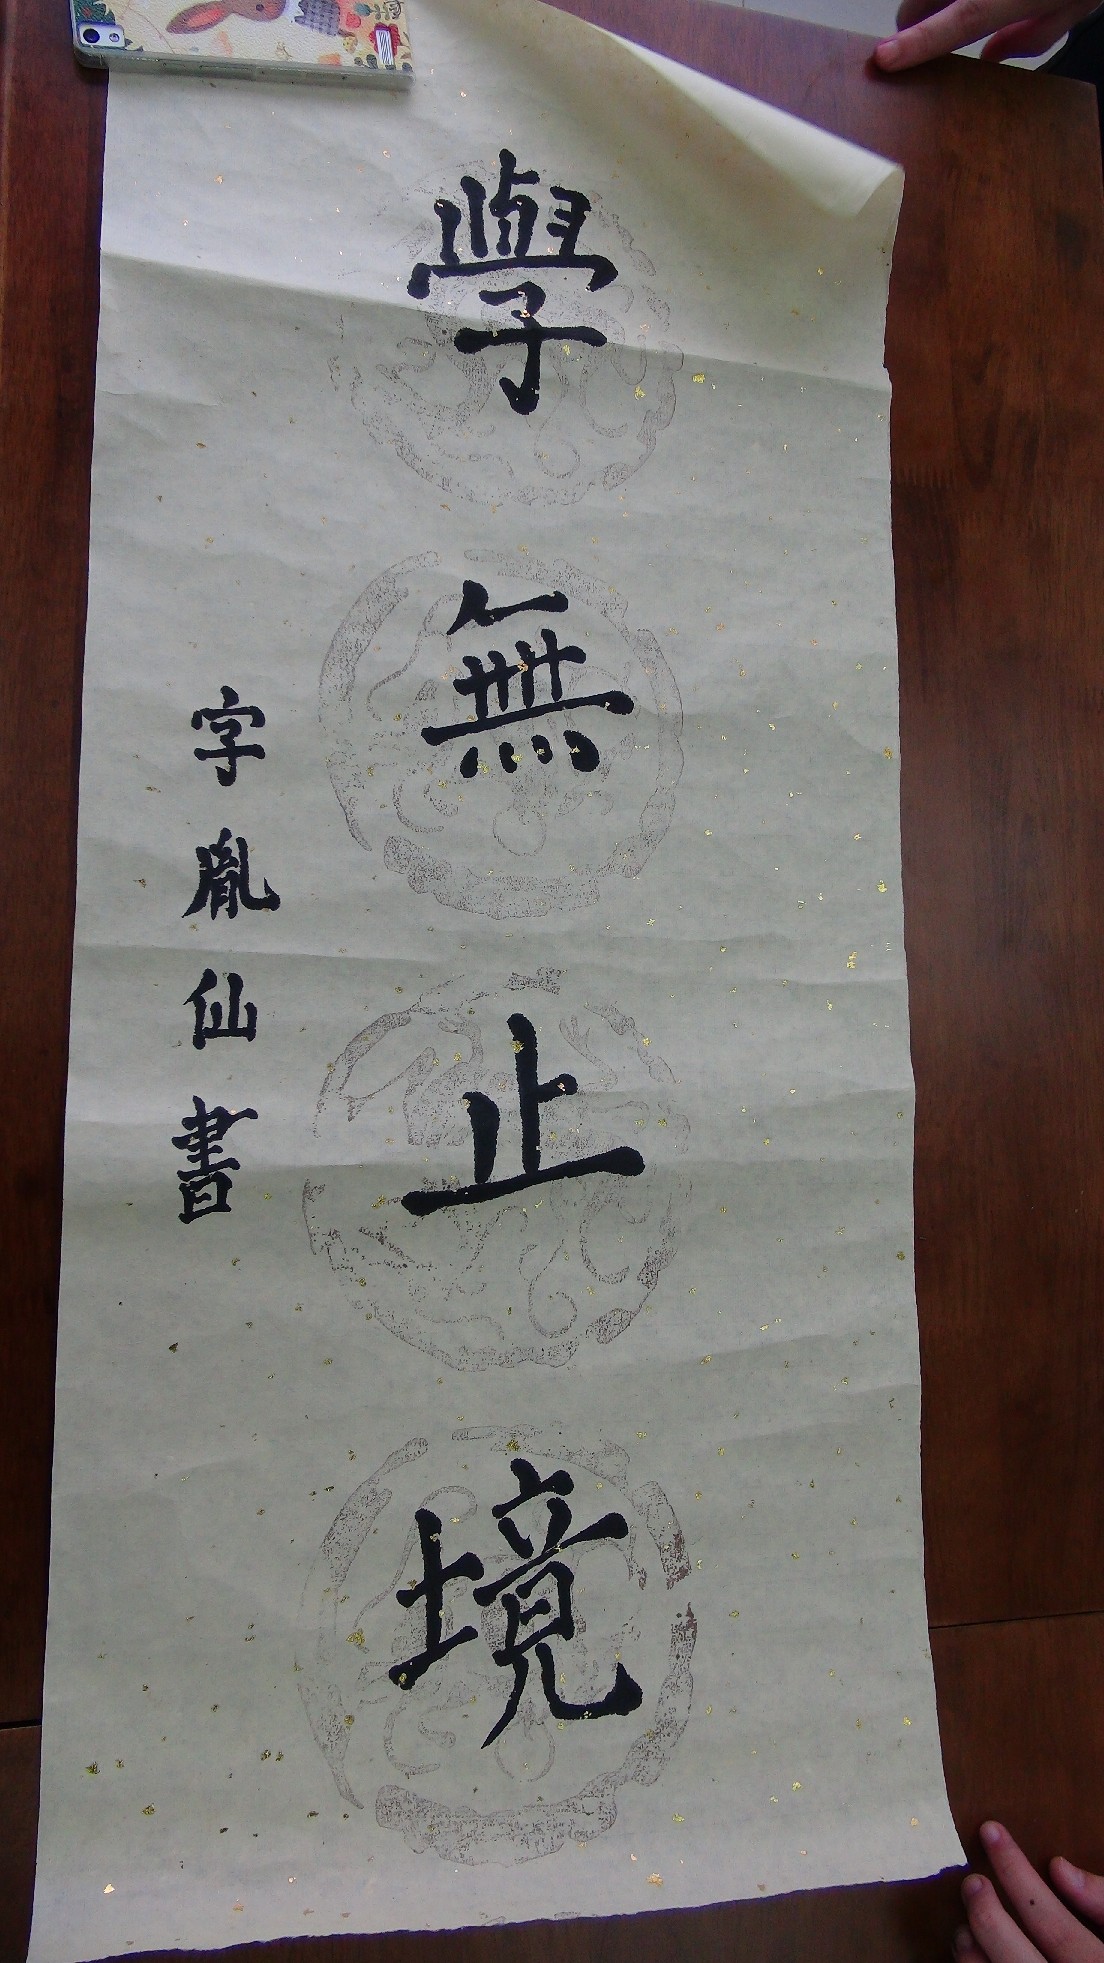 學無止境
字胤仙書